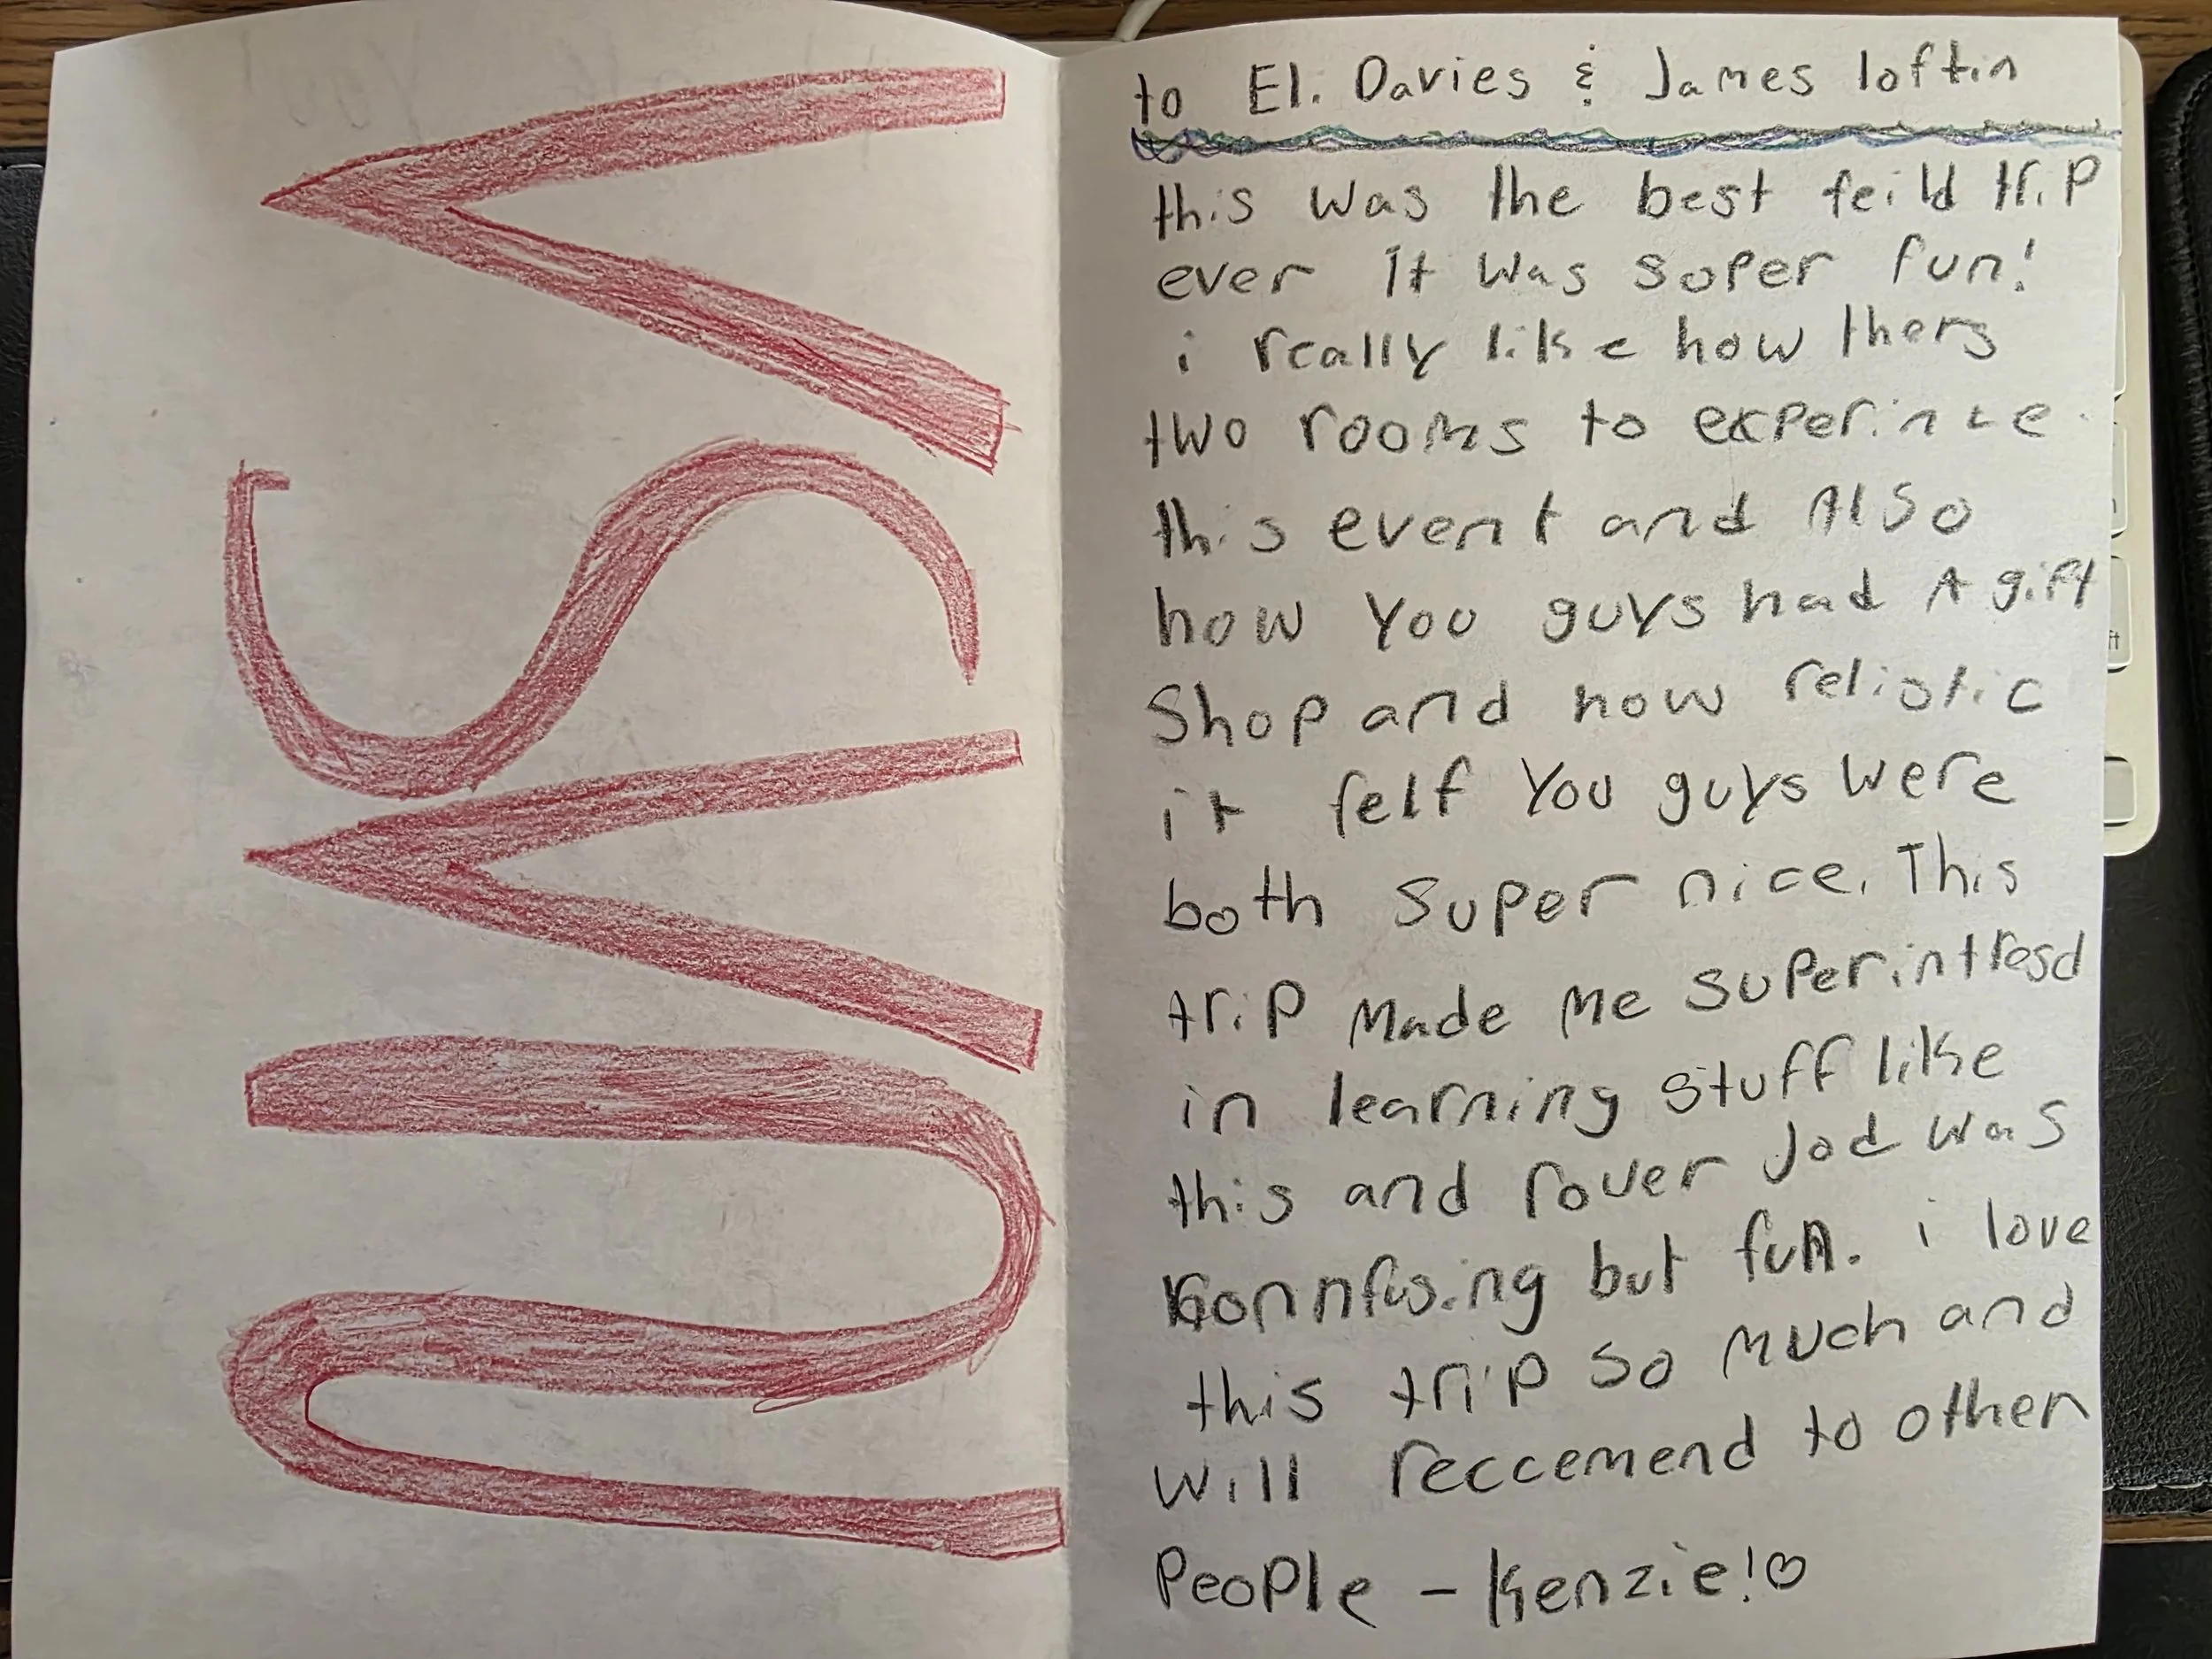 NASA
to El. Davies & James loftin
this was the best feild trip
ever it was soper fun!
i really like how thers
two rooms to experince
this event and Also
how You guys had A gift
Shop and how relistic
it felt You guys were
both super nice. This
trip Made Me super intresd
in learning stuff like
this and rover Jod was
konnfusing but fun. i love
this trip so much and
will reccemend to other
People - Kenzie!♡